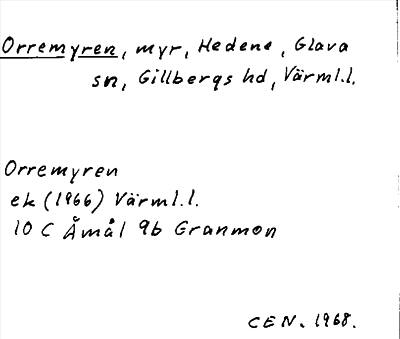 Orremyren, myr, Hedene, Glava
sn, Gillbergs hd, Värml.l.
Orremyren
ek (1966) Värml.l.
10 C Åmål 9b Granmon
CEN. 1968.